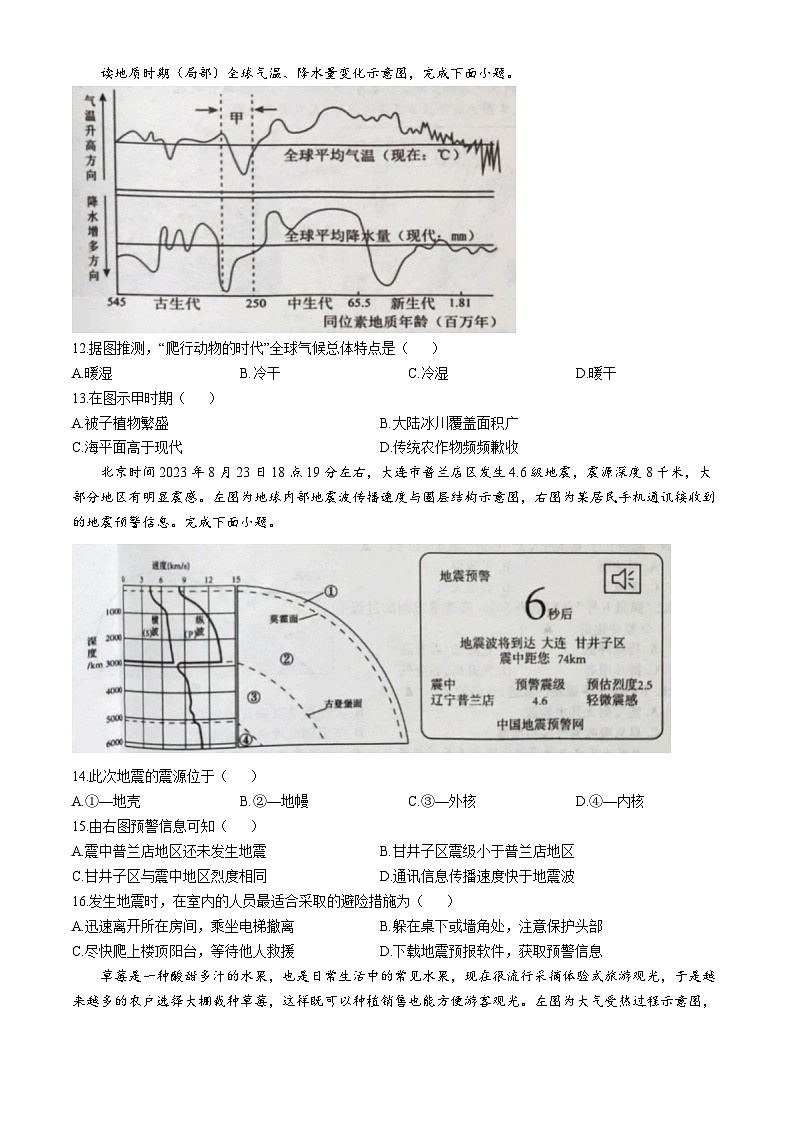 读地质时期（局部）全球气温、降水量变化示意图，完成下面小题。
气温升高方向
甲
全球平均气温（现在：℃）
降水增多方向
全球平均降水量（现代：mm）
545 古生代 250 中生代 65.5 新生代 1.81
同位素地质年龄（百万年）
12.据图推测，“爬行动物的时代”全球气候总体特点是（ ）
A.暖湿 B.冷干 C.冷湿 D.暖干
13.在图示甲时期（ ）
A.被子植物繁盛 B.大陆冰川覆盖面积广
C.海平面高于现代 D.传统农作物频频歉收
北京时间 2023 年 8 月 23 日 18 点 19 分左右，大连市普兰店区发生 4.6 级地震，震源深度 8 千米，大
部分地区有明显震感。左图为地球内部地震波传播速度与圈层结构示意图，右图为某居民手机通讯接收到
的地震预警信息。完成下面小题。
速度(km/s)
0 3 6 9 12 15
深度/km
1000
2000
3000
4000
5000
6000
横波(S)
纵波(P)
①
莫霍面
②
③
古登堡面
④
地震预警
6秒后
地震波将到达 大连 甘井子区
震中距您 74km
震中 预警震级 预估烈度2.5
辽宁普兰店 4.6 轻微震感
中国地震预警网
14.此次地震的震源位于（ ）
A.①—地壳 B.②—地幔 C.③—外核 D.④—内核
15.由右图预警信息可知（ ）
A.震中普兰店地区还未发生地震 B.甘井子区震级小于普兰店地区
C.甘井子区与震中地区烈度相同 D.通讯信息传播速度快于地震波
16.发生地震时，在室内的人员最适合采取的避险措施为（ ）
A.迅速离开所在房间，乘坐电梯撤离 B.躲在桌下或墙角处，注意保护头部
C.尽快爬上楼顶阳台，等待他人救援 D.下载地震预报软件，获取预警信息
草莓是一种酸甜多汁的水果，也是日常生活中的常见水果，现在很流行采摘体验式旅游观光，于是越
来越多的农户选择大棚栽种草莓，这样既可以种植销售也能方便游客观光。左图为大气受热过程示意图，